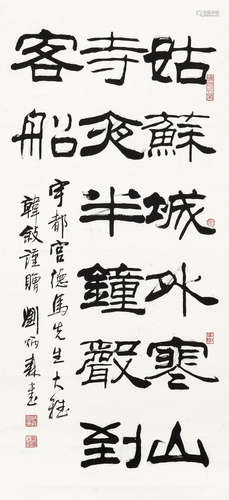 姑蘇城外寒山
寺夜半鐘聲到
客船
宇都宮德馬先生大雅
韓敘謹贈 劉炳森書